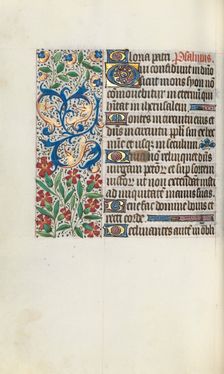 Gloria patri Psalmus
Qui confidunt in dno
sicut mons syon no
commovebitur in eternu qui
hitat in iherusalem
Montes in circuitu eius et
dns in circuitu ppli sui ex hoc
nunc et usq; in seculum
Quia no relinquet dns
virgam pctor super sortem
iustor ut non extendat iusti
ad iniquitatem manus suas
Benefac domine bonis et
recti corde
Declinantes aute in obli